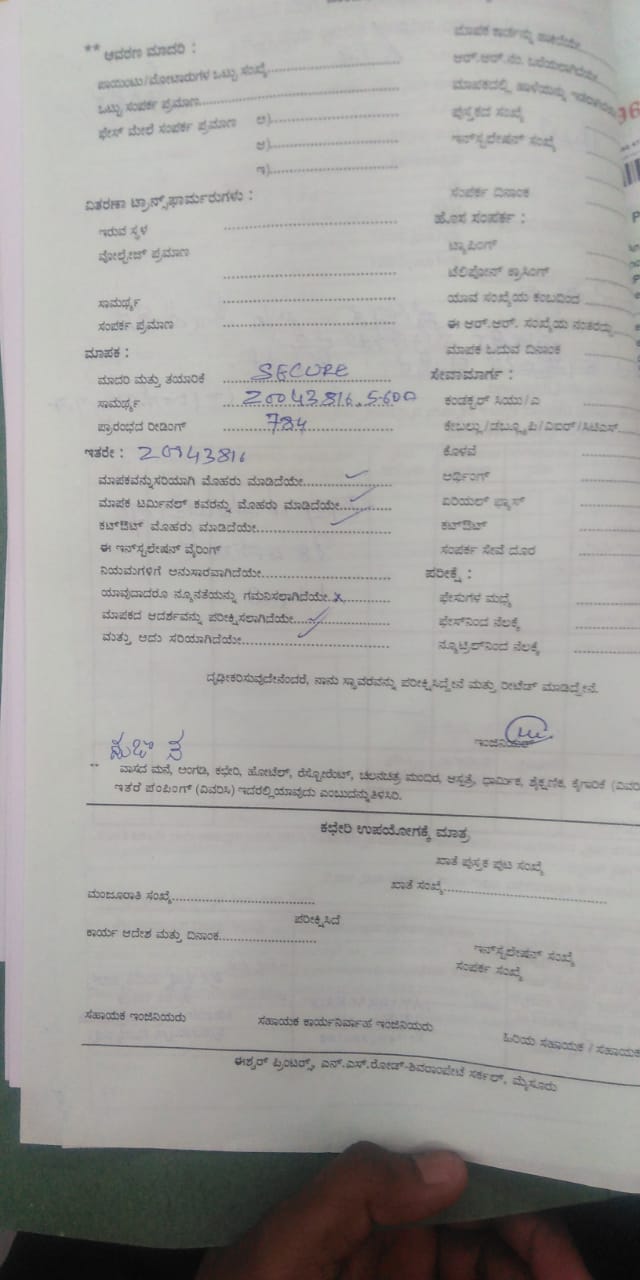 ** ಆವರಣ ಮಾದರಿ :
ಪಾಯಿಂಟು/ಮೋಟಾರುಗಳ ಒಟ್ಟು ಸಂಖ್ಯೆ
ಒಟ್ಟು ಸಂಪರ್ಕ ಪ್ರಮಾಣ
ಫೇಸ್ ಮೇಲೆ ಸಂಪರ್ಕ ಪ್ರಮಾಣ ಅ)
ಆ)
ಇ)
ವಿತರಣಾ ಟ್ರಾನ್ಸ್‌ಫಾರ್ಮರುಗಳು :
ಇರುವ ಸ್ಥಳ
ವೋಲ್ಟೇಜ್ ಪ್ರಮಾಣ
ಸಾಮರ್ಥ್ಯ
ಸಂಪರ್ಕ ಪ್ರಮಾಣ
ಮಾಪಕ :
ಮಾದರಿ ಮತ್ತು ತಯಾರಿಕೆ SECURE
ಸಾಮರ್ಥ್ಯ 20043816, 5-60A
ಪ್ರಾರಂಭದ ರೀಡಿಂಗ್ 784
ಇತರೇ : 20043816
ಮಾಪಕವನ್ನು ಸರಿಯಾಗಿ ಮೊಹರು ಮಾಡಿದೆಯೇ
ಮಾಪಕ ಟರ್ಮಿನಲ್ ಕವರನ್ನು ಮೊಹರು ಮಾಡಿದೆಯೇ
ಕಟ್ಔಟ್ ಮೊಹರು ಮಾಡಿದೆಯೇ
ಈ ಇನ್‌ಸ್ಟಲೇಷನ್ ವೈರಿಂಗ್
ನಿಯಮಗಳಿಗೆ ಅನುಸಾರವಾಗಿದೆಯೇ
ಯಾವುದಾದರೂ ನ್ಯೂನತೆಯನ್ನು ಗಮನಿಸಲಾಗಿದೆಯೇ x
ಮಾಪಕದ ಆದರ್ಶವನ್ನು ಪರೀಕ್ಷಿಸಲಾಗಿದೆಯೇ
ಮತ್ತು ಅದು ಸರಿಯಾಗಿದೆಯೇ
ಮಾಪಕ ಕಾರ್ಯನ್ನು
ಆರ್.ಆರ್.ನಂ. ಬರೆಯಲಾಗಿದೆಯೇ
ಮಾಪಕದಲ್ಲಿ ಹಾಳೆಯನ್ನು
ಪುಸ್ತಕದ ಸಂಖ್ಯೆ
ಇನ್‌ಸ್ಟಲೇಷನ್ ಸಂಖ್ಯೆ
ಸಂಪರ್ಕ ದಿನಾಂಕ
ಹೊಸ ಸಂಪರ್ಕ :
ಟ್ಯಾಪಿಂಗ್
ಟೆಲಿಫೋನ್ ಕ್ರಾಸಿಂಗ್
ಯಾವ ಸಂಖ್ಯೆಯ ಕಂಬದಿಂದ
ಈ ಆರ್.ಆರ್. ಸಂಖ್ಯೆಯ ನಂತರದ್ದು
ಮಾಪಕ ಓದುವ ದಿನಾಂಕ
ಸೇವಾಮಾರ್ಗ :
ಕಂಡಕ್ಟರ್ ಸಿಯು/ಎ
ಕೇಬಲ್ಲು/ಡಬ್ಲ್ಯೂಪಿ/ವಿಐಆರ್/ಸಿಟಿಎಸ್
ಕೊಳವೆ
ಅರ್ಥಿಂಗ್
ಏರಿಯಲ್ ಫ್ಯೂಸ್
ಕಟ್‌ಔಟ್
ಸಂಪರ್ಕ ಸೇವೆ ದೂರ
ಪರೀಕ್ಷೆ :
ಫೇಸುಗಳ ಮಧ್ಯೆ
ಫೇಸ್‌ನಿಂದ ನೆಲಕ್ಕೆ
ನ್ಯೂಟ್ರಲ್‌ನಿಂದ ನೆಲಕ್ಕೆ
ದೃಢೀಕರಿಸುವುದೇನೆಂದರೆ, ನಾನು ಸ್ಥಾವರವನ್ನು ಪರೀಕ್ಷಿಸಿದ್ದೇನೆ ಮತ್ತು ರೀಟೆಡ್ ಮಾಡಿದ್ದೇನೆ.
ಇಂಜಿನಿಯರ್
** ವಾಸದ ಮನೆ, ಅಂಗಡಿ, ಕಛೇರಿ, ಹೋಟೆಲ್, ರೆಸ್ಟೋರೆಂಟ್, ಚಲನಚಿತ್ರ ಮಂದಿರ, ಆಸ್ಪತ್ರೆ, ಧಾರ್ಮಿಕ, ಶೈಕ್ಷಣಿಕ, ಕೈಗಾರಿಕೆ
ಇತರೆ ಪಂಪಿಂಗ್ (ವಿವರಿಸಿ) ಇದರಲ್ಲಿ ಯಾವುದು ಎಂಬುದನ್ನು ತಿಳಿಸಿರಿ.
ಕಛೇರಿ ಉಪಯೋಗಕ್ಕೆ ಮಾತ್ರ
ಖಾತೆ ಪುಸ್ತಕ ಪುಟ ಸಂಖ್ಯೆ
ಮಂಜೂರಾತಿ ಸಂಖ್ಯೆ ಖಾತೆ ಸಂಖ್ಯೆ
ಪರೀಕ್ಷಿಸಿದೆ
ಕಾರ್ಯ ಆದೇಶ ಮತ್ತು ದಿನಾಂಕ
ಇನ್‌ಸ್ಟಲೇಷನ್ ಸಂಖ್ಯೆ
ಸಂಪರ್ಕ ಸಂಖ್ಯೆ
ಸಹಾಯಕ ಇಂಜಿನಿಯರು ಸಹಾಯಕ ಕಾರ್ಯನಿರ್ವಾಹ ಇಂಜಿನಿಯರು ಹಿರಿಯ ಸಹಾಯಕ / ಸಹಾಯಕ
ಈಶ್ವರ್ ಪ್ರಿಂಟರ್ಸ್, ಎನ್.ಎಸ್.ರೋಡ್-ಶಿವರಾಂಪೇಟೆ ಸರ್ಕಲ್, ಮೈಸೂರು